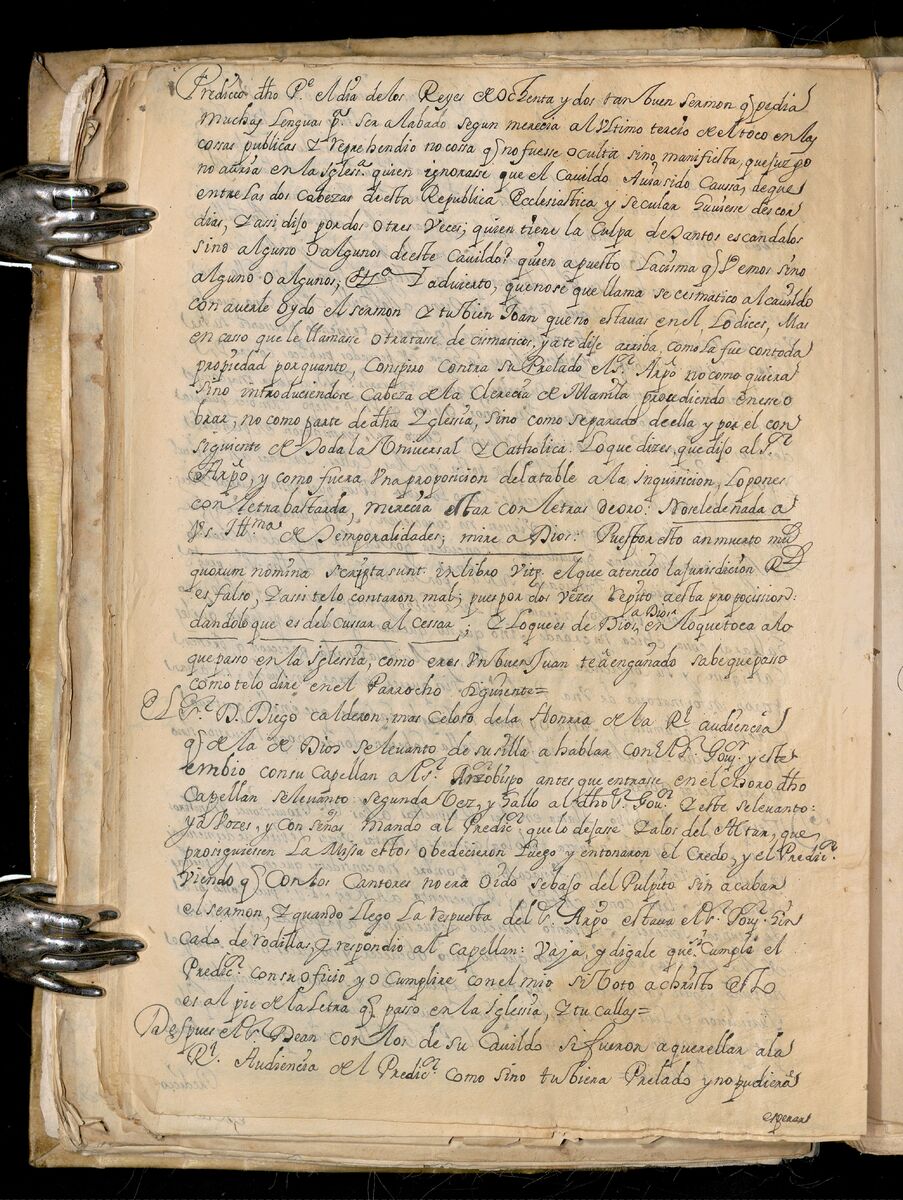 Predico dho Pe. el dia de los Reyes de ochenta y dos tan buen sermon q pedia
muchas lenguas pa. ser alabado segun merecia al Vltimo tercio del toco en las
cossas publicas & reprehendio no cosa q no fuesse oculta sino manifiesta, que juzgo
no auria en la Iglesia quien ignorase que el Cauildo Auia sido Causa, de que
entre las dos Cabezas de esta Republica Ecclesiastica y secular huuiese discor
dias, & assi dijo por dos o tres Veces, quien tiene la Culpa de tantos escandalos
sino alguno o algunos de este Cauildo? quien a puesto La cisma q Vemos sino
alguno o algunos, &ta. I aduierto, que no sé que llama se cismatico al cauildo
con auerle oydo el sermon & tu bien Joan que no estauas en el, Lo dices, Mas
en caso que le llamase o tratase de cismaticos, ya te dije arriba, como la fue con toda
propiedad por quanto, Conspiro Contra su Prelado el Sr. Arpo no como quiera
sino introduciendose Cabeza de la Clerecia de Manila procediendo en ese o
brar, no como parte de dha Iglesia, sino como separado de ella y por el con
siguiente de toda la Vniversal & Catholica. Lo que dizes, que dijo al Sr.
Arpo, y como fuera Vna proposicion delatable a la Inquisicion, Lo pones
con letra bastarda, merecia estar con letras de oro: No se le de nada a
Vs. Illma. de temporalidades; mire a Dios: Pues por esto an muerto
quorum nomina scripta sunt in libro Vitę. el que atencio la jurisdicion Rl
es falso, & assi te lo contaron mal; pues por dos vezes repitio aesta propocission:
dando lo que es del Cessar al Cessar, ; & lo que es de Dios, a Dios, en lo que toca a lo
que passo en la Iglesia, como eres Vn buen Juan te a engañado sabe que passo
como te lo dire en el Parrocho siguiente=
El Sr. D. Diego calderon, mas celoso de la Honrra de la Rl. audiencia
q de la de Dios se leuanto de su silla a hablar con el Sr. Gour. y este
embio con su Capellan al Sr. Arzobispo antes que entrasse en el Choro, dho
Capellan se leuanto segunda vez, y hallo al dho Sr. Gour. & este se leuanto:
y a Vozes, y con señas mando al Predicr. que lo dejase & a los del Altar, que
prosiguiessen La Missa estos obedecieron Luego y entonaron el Credo, y el Predicr.
Viendo q Con los Cantores no era oido se bajo del Pulpito sin acabar
el sermon, & quando llego La respuesta del Sr. Arpo estaua el Sr. Gour. hin
cado de rodillas, & respondio al capellan: Vaja, y digale que Cumpla el
Predicr. con su oficio y yo Cumplire con el mio si Voto a christo esto
es al pie de la Letra q passo en la Iglesia, & tu callas=
Despues el Sr. Dean con los de su Cauildo si fueron a querellar a la
Rl. Audiencia del Predicr. como si no tubiera Prelado y no pudiera
esperar